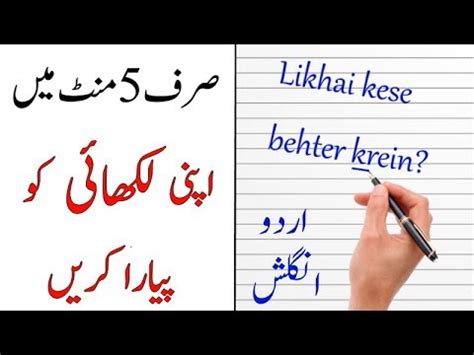 صرف 5 منٹ میں
اپنی لکھائی کو
پیارا کریں
Likhai kese
behter krein?
اردو
انگلش